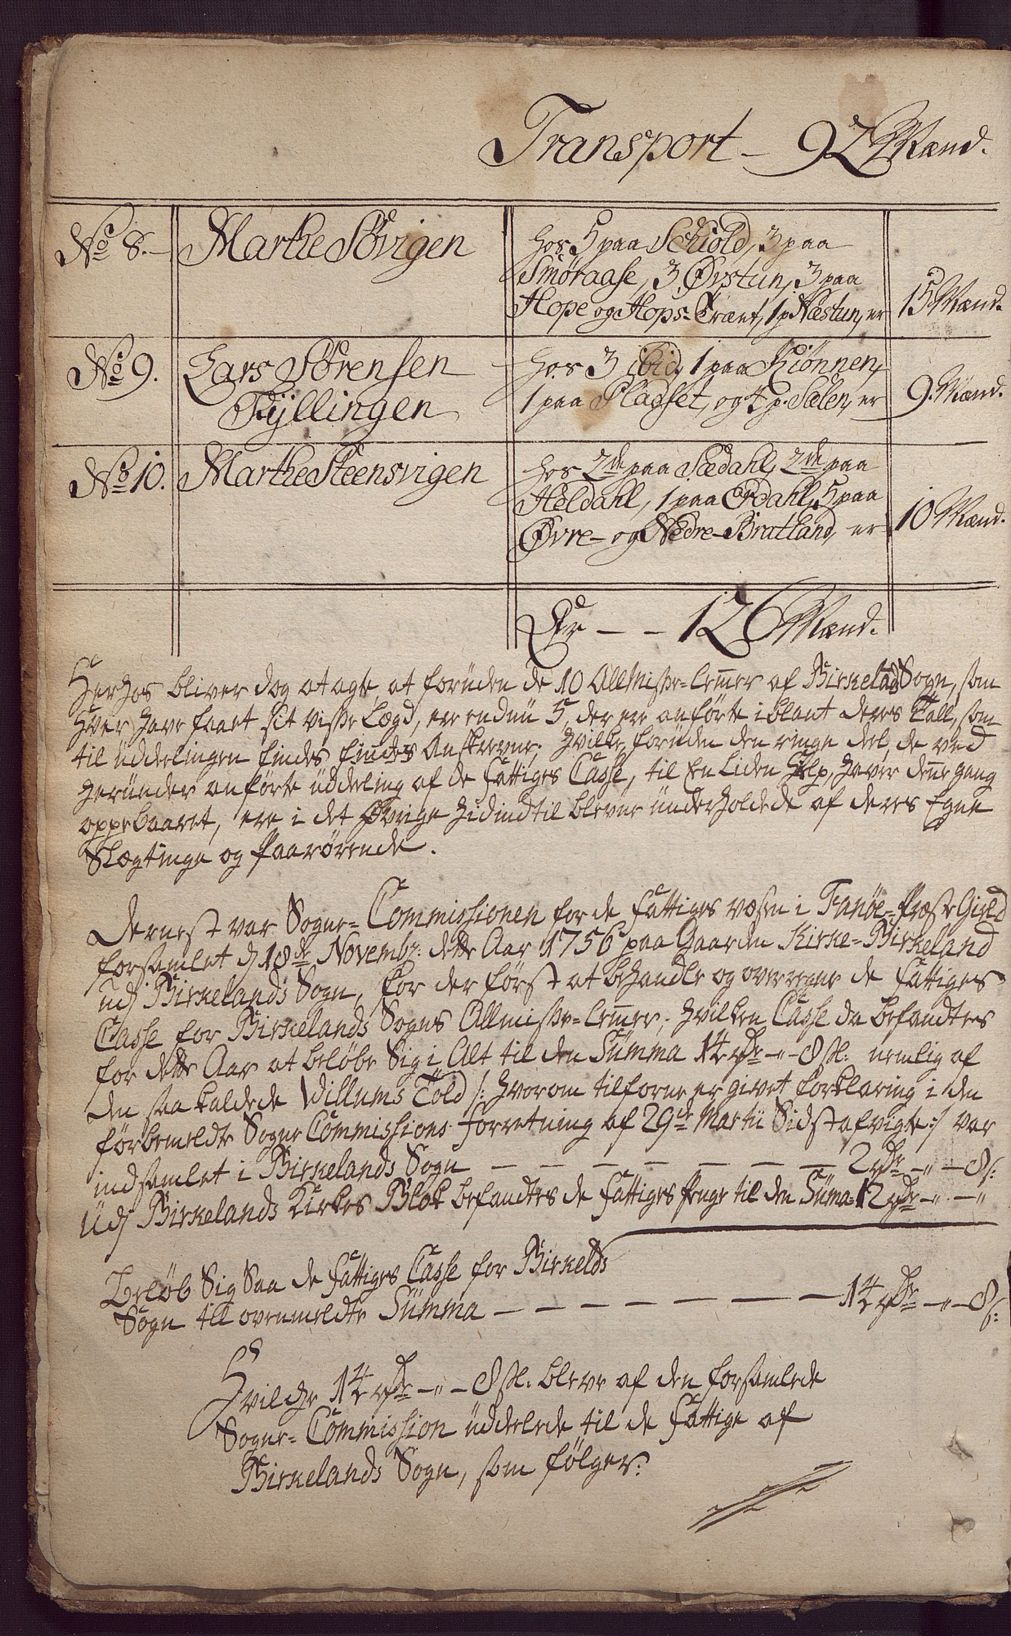 Transport – 92 Mænd.
No 8. – Marthe Søvigen
hos 5 paa Schiold, 3 paa
Smøraase, 3 Øvstun, 3 paa
Hope og Hops-Træet, 1 p. Næstun, er 15 Mænd.
No 9. Lars Sørensen
Tyllingen
hos 3 1 paa Kiønnen,
1 paa Pladset, og 4 p. Sælen, er 9. Mænd.
No 10. Marthe Steensvigen
hos 2de paa Sædahl, 2de paa
Heldahl, 1 paa Ødahl, 5 paa
Øvre- og Nedre-Bratland, er 10 Mænd.
Er – – 126 Mænd.
Herhos bliver dog at agte, at foruden de 10 Allmisse-Lemer af Birkelad Sogn, som
hver have faaet sit visse Lægd, ere endnu 5, der ere anførte iblant deres Tall, som
til uddelingen findes findes Anskrevne; hvilke, foruden den ringe deel, de ved
herunder anførte uddeling af de fattiges Casse, til En Liden Hielp, haver dene gang
oppebaaret, ere i det Øvrige hidindtil blevne underholdede af deres Egne
Slægtinge og Paarørende.
Dernest var Sogne-Commissionen for de fattiges væsen i Fanöe-Præste Gield
forsamlet d. 18de Novembr: dette Aar 1756 paa Gaarden Kirke-Birkeland
udj Birkelands Sogn, for der først at behandle og overveye de fattiges
Casse for Birkelands Sogns Allmisse-Lemer; hvilken Casse da befandtes
for dette Aar at beløbe Sig i Alt til den Summa 14 rdr – " – 8 sl: nemlig af
den saa kaldede Willums Told /: hvorom tilforne er givet forklaring i den
førbemeldte Sogne Commissions-forretning af 29de Martii Sidst afvigte :/ var
indsamlet i Birkelands Sogn – – – – – – – 2 rdr – " – 8 s:
Udj Birkelands Kirkes Blok befandtes de fattiges penge til den Suma 12 rdr – " – "
Beløb Sig Saa de fattiges Casse for Birkelds
Sogn til ovenmeldte Summa – – – – – – – – 14 rdr – " – 8 s:
Hvilche 14 rdr – " – 8 sl: bleve af den forsamlede
Sogne-Commission uddelede til de fattige af
Birkelands Sogn, som følger: